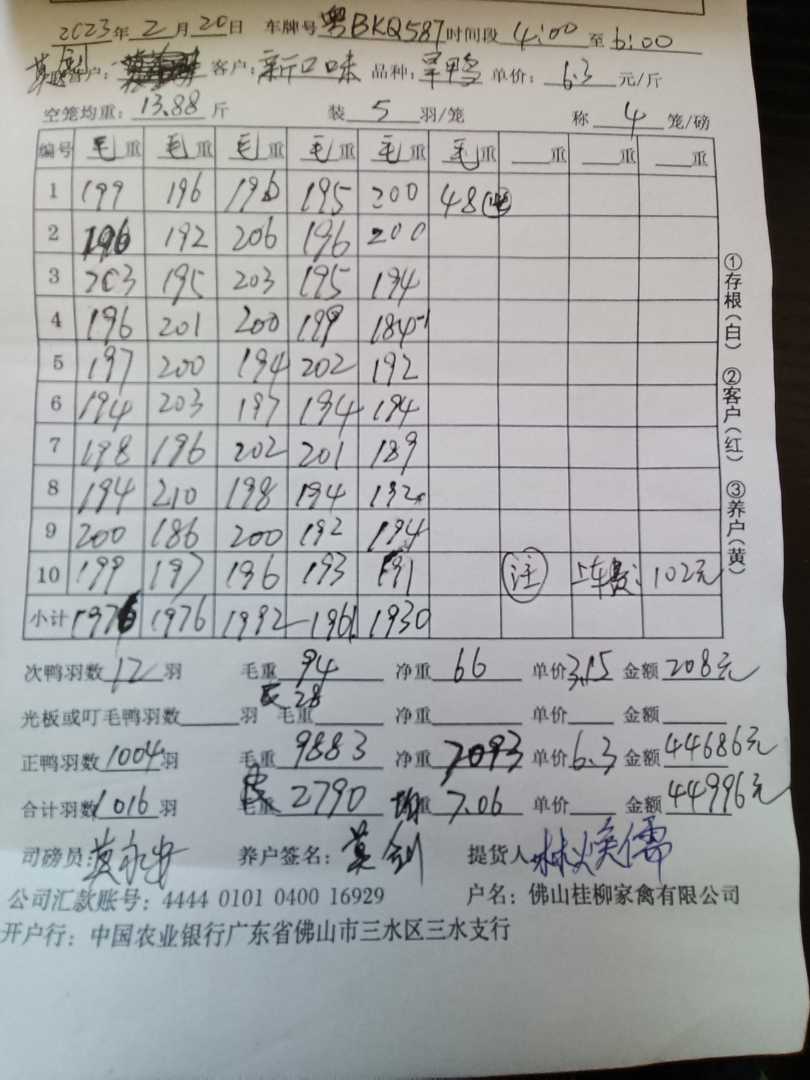 2023年2月20日 车牌号粤BKQ587时间段4:00至6:00
莫剑 客户:新口味 品种:旱鸭 单价:6.3元/斤
空笼均重:13.88斤 装5羽/笼 称4笼/磅
编号 毛重 毛重 毛重 毛重 毛重 毛重 重 重 重
1 199 196 196 195 200 48
2 196 192 206 196 200
3 203 195 203 195 194
4 196 201 200 199 184-1
5 197 200 194 202 192
6 194 203 197 194 194
7 198 196 202 201 189
8 194 210 198 194 192
9 200 186 200 192 194
10 199 197 196 193 191 注 上车费:102元
小计 1976 1976 1992 1961 1930
次鸭羽数12羽 毛重94 净重66 单价3.15 金额208元
灰28
光板或叮毛鸭羽数 羽 毛重 净重 单价 金额
正鸭羽数1004羽 毛重9883 净重7093 单价6.3 金额44686元
合计羽数1016羽 皮重2790 均重7.06 单价 金额44996元
司磅员: 养户签名:莫剑 提货人林焕儒
公司汇款账号:4444 0101 0400 16929 户名:佛山桂柳家禽有限公司
开户行:中国农业银行广东省佛山市三水区三水支行
①存根(白) ②客户(红) ③养户(黄)